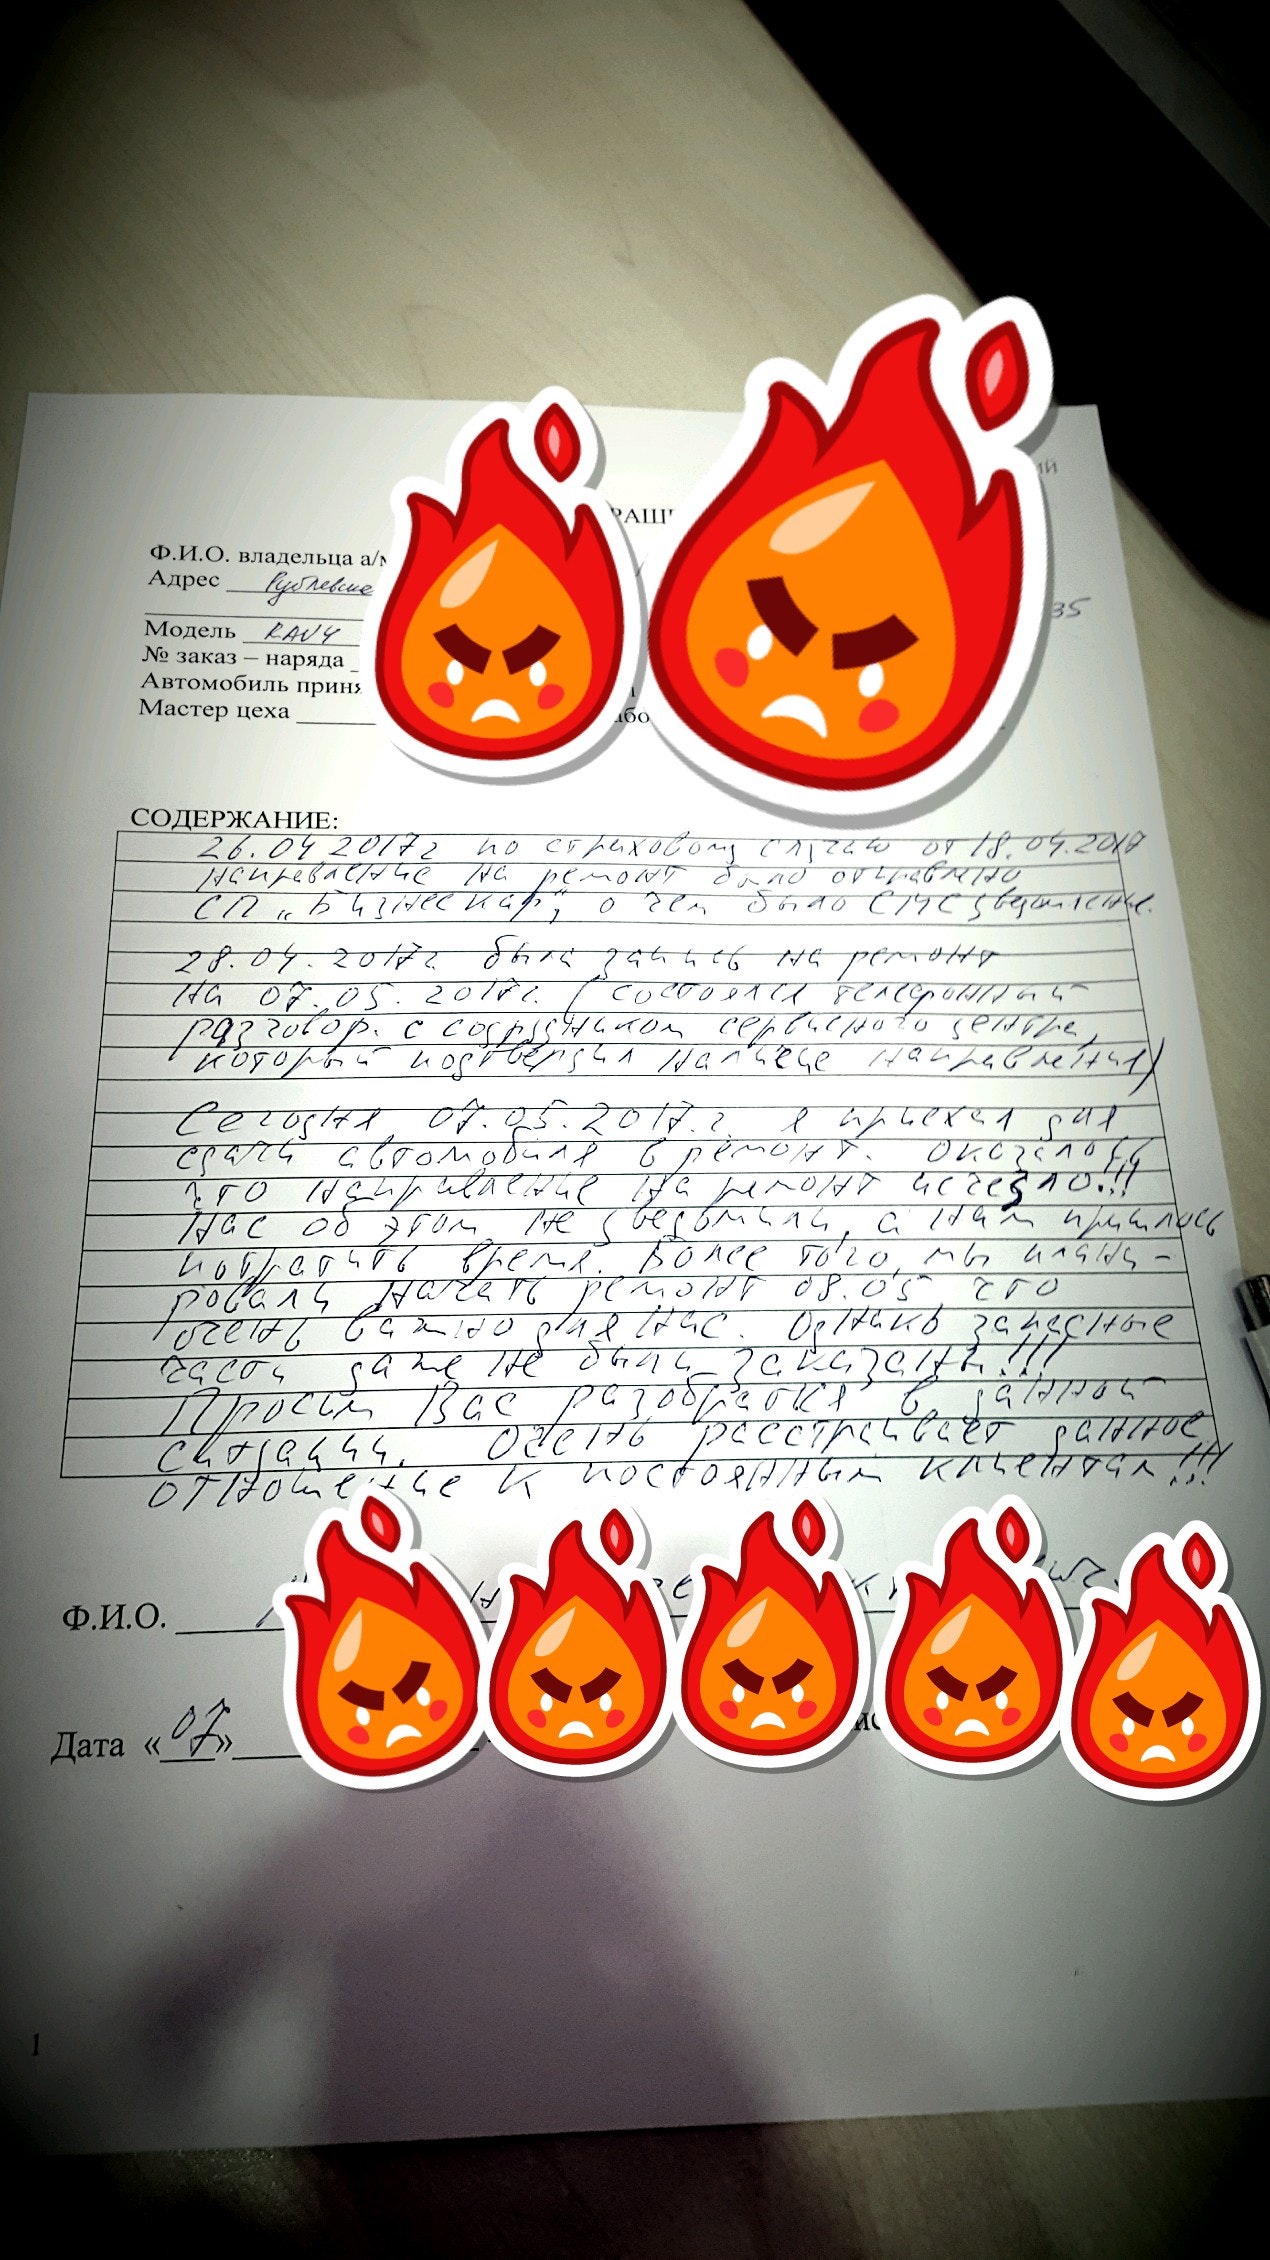 ий
РАЩ
Ф.И.О. владельца а/м
Адрес Рублевское
35
Модель RAV4
№ заказ – наряда
Автомобиль приня
Мастер цеха або
СОДЕРЖАНИЕ:
26.04 2017г по страховому случаю от 18.04.2017
направление на ремонт было отправлено
СП „Бизнес кар“, о чем было СМС уведомление.
28.04.2017г. была запись на ремонт
на 07.05.2017г. (состоялся телефонный
разговор с сотрудником сервисного центра,
который подтвердил наличие направления)
Сегодня 07.05.2017.г. я приехал для
сдачи автомобиля в ремонт. Оказалось
что направление на ремонт исчезло!!!
Нас об этом не уведомили, а нам пришлось
потратить время. Более того, мы плани-
ровали начать ремонт 08.05 что
очень важно для нас. Однако запасные
части даже не были заказаны!!!
Просим Вас разобраться в данной
ситуации. Очень расстраивает данное
отношение к постоянным клиентам!!!
Ф.И.О.
Дата «07»